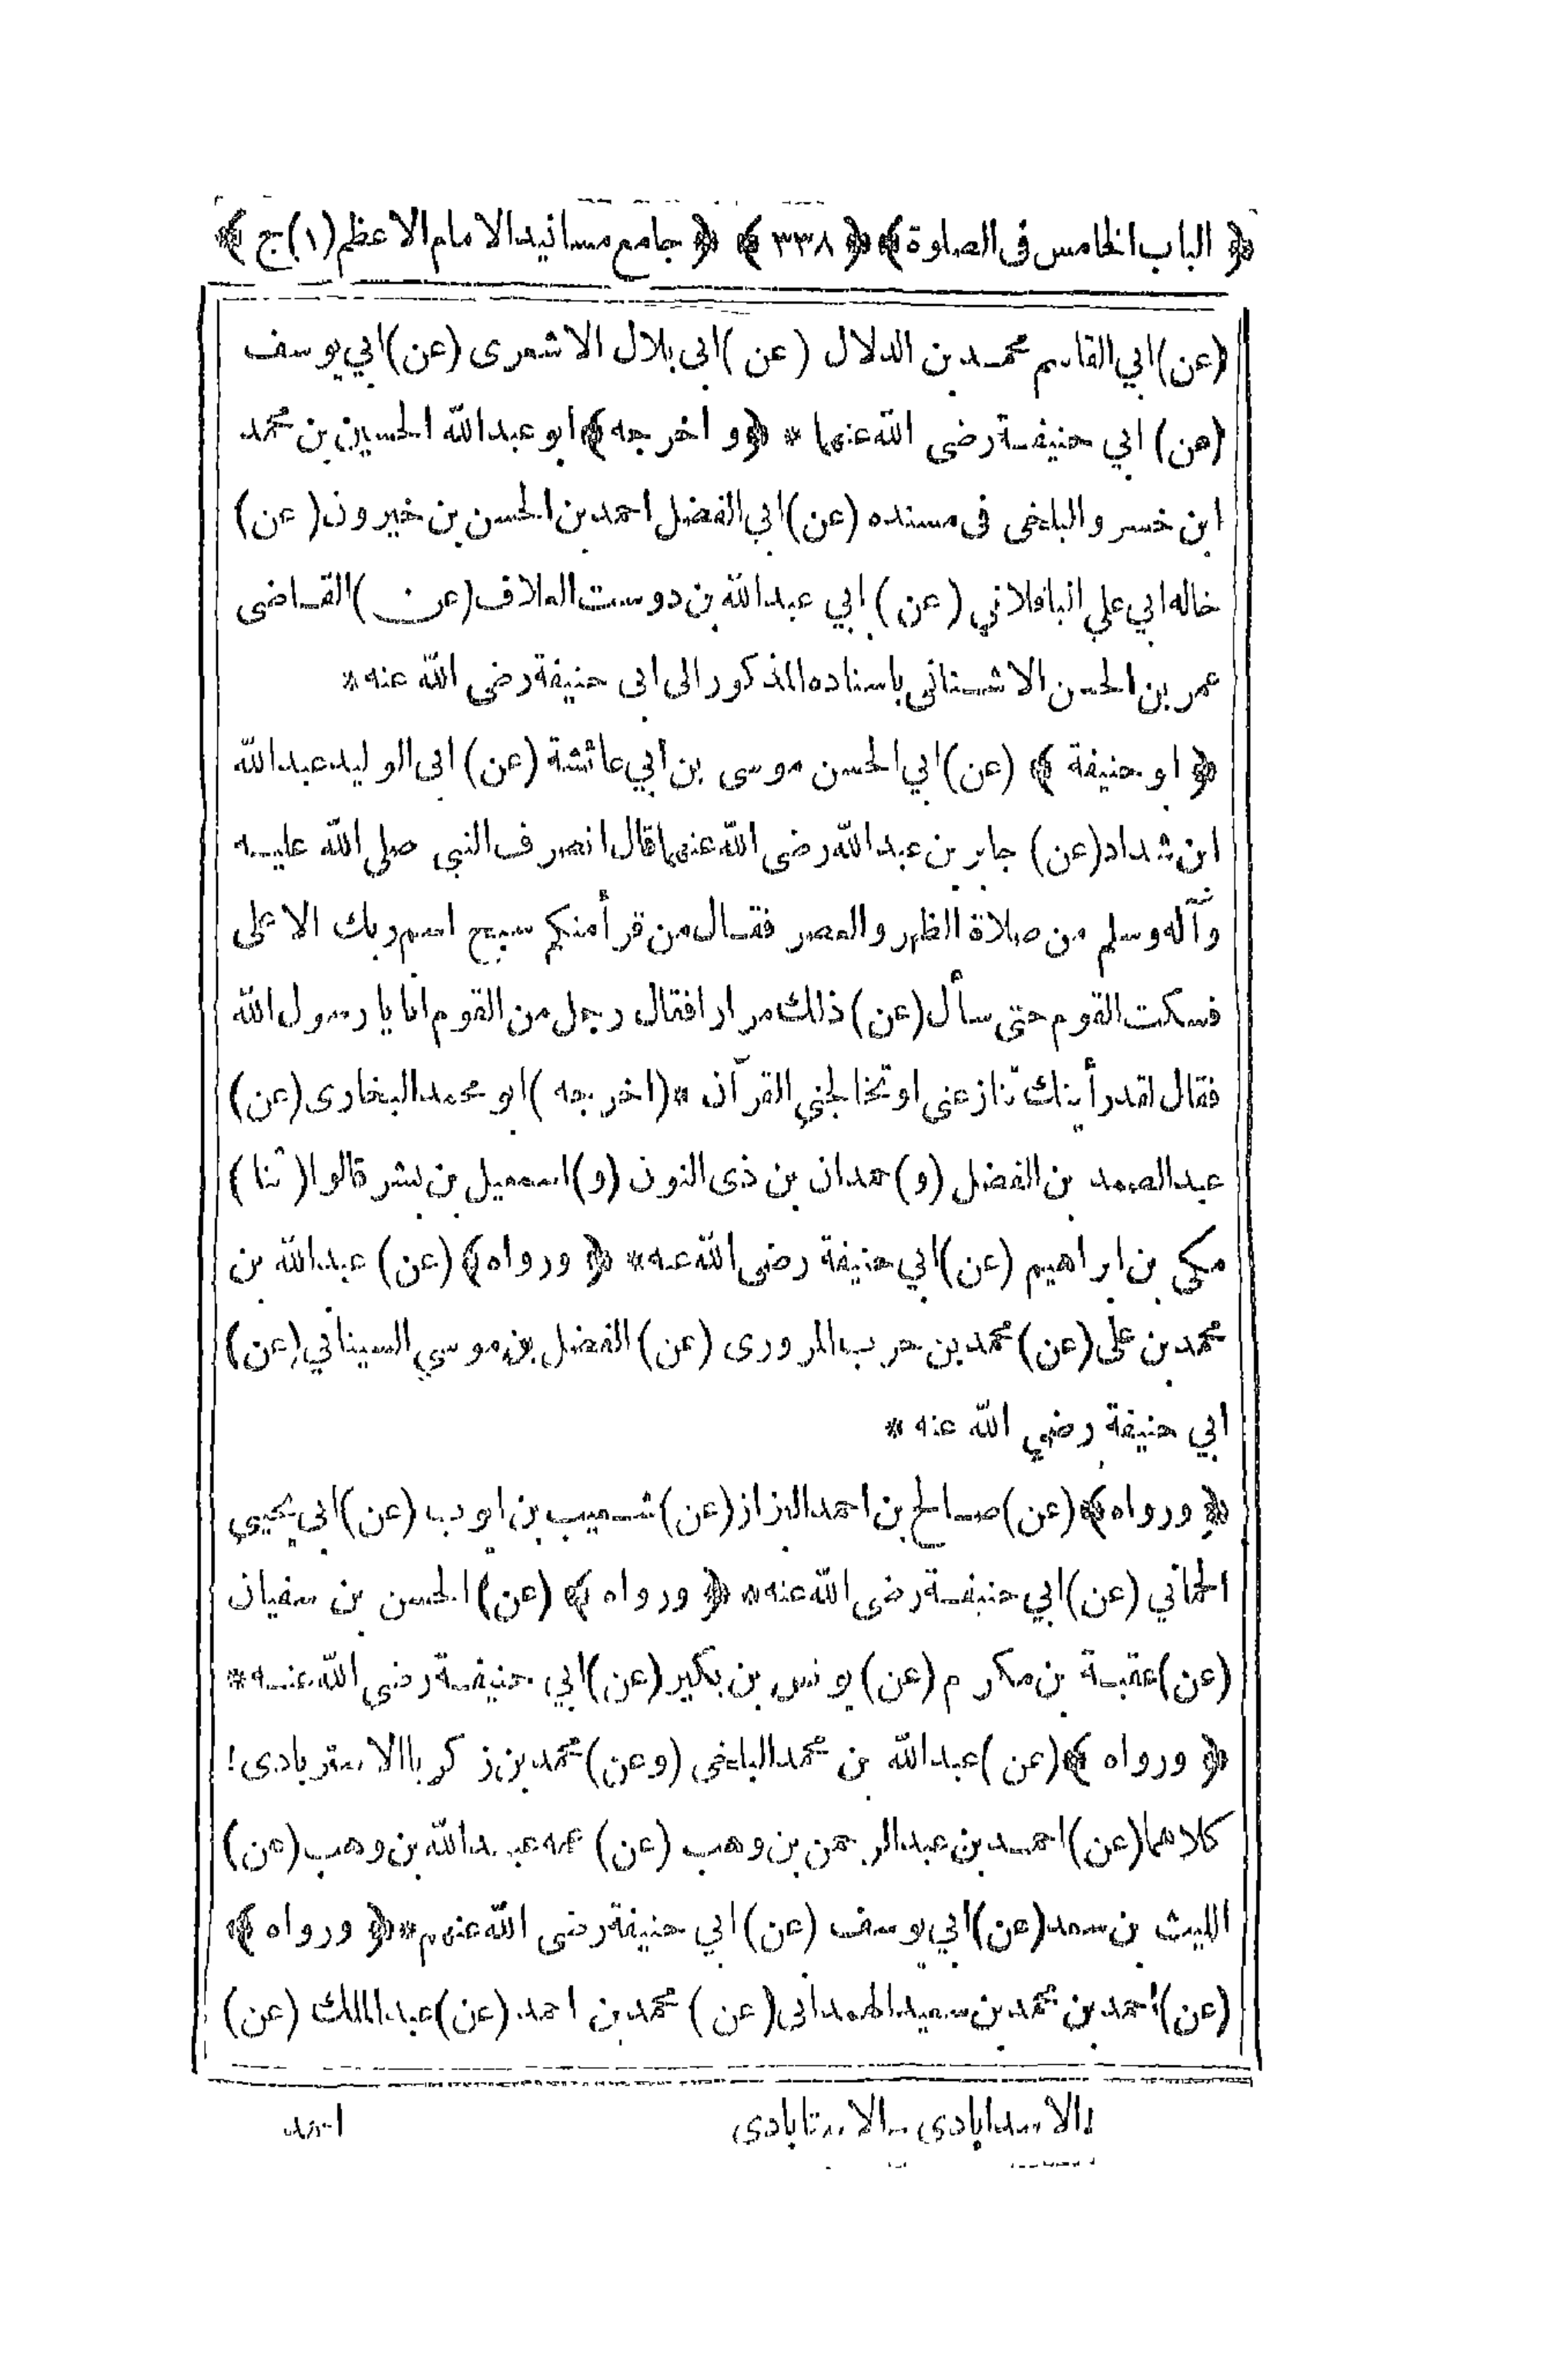 ﴿ الباب الخامس فى الصلوة ﴾ ﴿ ٣٣٨ ﴾ ﴿ جامع مسانيد الامام الاعظم (١) ج ﴾
(عن) ابي القاسم محمد بن الدلال (عن) ابى بلال الاشعرى (عن) ابي يوسف
(عن) ابي حنيفة رضى الله عنهما * ﴿ و اخرجه ﴾ ابو عبدالله الحسين بن محمد
ابن خسرو البلخى فى مسنده (عن) ابي الفضل احمد بن الحسن بن خيرون (عن)
خاله ابي علي الباقلاني (عن) ابي عبدالله بن دوست العلاف (عن) القاضى
عمر بن الحسن الاشنانى باسناده المذكور الى ابى حنيفة رضى الله عنه *
﴿ ابو حنيفة ﴾ (عن) ابي الحسن موسى بن ابي عائشة (عن) ابى الوليد عبدالله
ابن شداد (عن) جابر بن عبدالله رضى الله عنهما قال انصرف النبى صلى الله عليه
وآله وسلم من صلاة الظهر والعصر فقال من قرأ منكم سبح اسم ربك الاعلى
فسكت القوم حتى سأل (عن) ذلك مرارا فقال رجل من القوم انا يا رسول الله
فقال لقد رأيتك تنازعنى او تخالجني القرآن * (اخرجه) ابو محمد البخارى (عن)
عبد الصمد بن الفضل (و) حمدان بن ذى النون (و) اسمعيل بن بشر قالوا (ثنا)
مكي بن ابراهيم (عن) ابي حنيفة رضى الله عنه * ﴿ ورواه ﴾ (عن) عبدالله بن
محمد بن على (عن) محمد بن حرب المروزى (عن) الفضل بن موسي السيناني (عن)
ابي حنيفة رضي الله عنه *
﴿ ورواه ﴾ (عن) صالح بن احمد البزاز (عن) شعيب بن ايوب (عن) ابى يحيى
الحماني (عن) ابي حنيفة رضى الله عنه * ﴿ ورواه ﴾ (عن) الحسن بن سفيان
(عن) عقبة بن مكرم (عن) يونس بن بكير (عن) ابي حنيفة رضى الله عنه *
﴿ ورواه ﴾ (عن) عبدالله بن محمد البلخى (وعن) محمد بن زكريا الاستربادى !
كلاهما (عن) احمد بن عبد الرحمن بن وهب (عن) عمه عبدالله بن وهب (عن)
الليث بن سعد (عن) ابي يوسف (عن) ابي حنيفة رضى الله عنهم * ﴿ ورواه ﴾
(عن) احمد بن محمد بن سعيد الهمدانى (عن) محمد بن احمد (عن) عبد الملك (عن)
! الاسدابادى _ الاستابادى